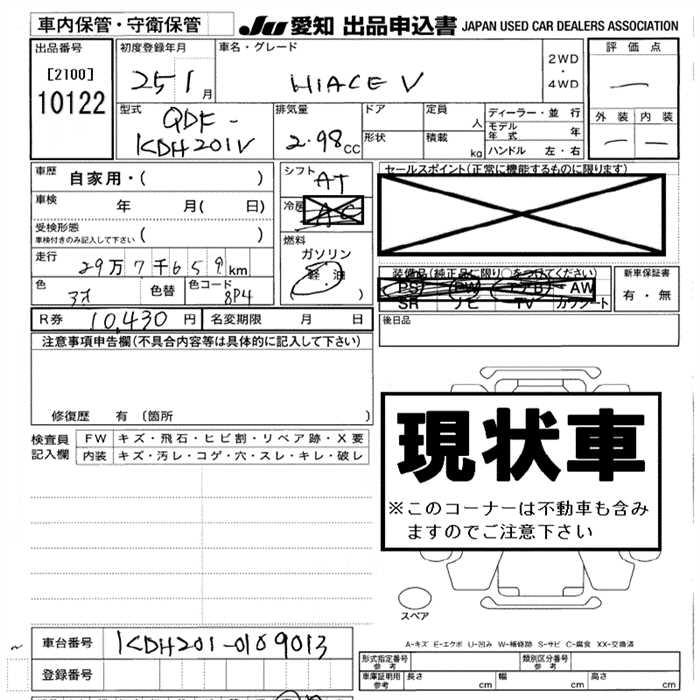 車内保管・守衛保管
JU 愛知 出品申込書 JAPAN USED CAR DEALERS ASSOCIATION
出品番号
[2100]
10122
初度登録年月
25 1 月
車名・グレード
HIACE V
2WD
・
4WD
評価点
—
外装 内装
— —
型式
QDF-
KDH201V
排気量
2.98 cc
ドア
形状
定員
人
積載
kg
ディーラー・並行
モデル年式 年
ハンドル 左・右
車歴
自家用・( )
車検 年 月( 日)
受検形態
車検付きのみ記入して下さい ( )
走行
29万7千659km
色
色替
色コード
8P4
シフト
AT
冷房
AC
燃料
ガソリン
軽油
( )
セールスポイント(正常に機能するものに限ります)
装備品(純正品に限り○をつけてください)
PS PW エアB AW
SR ナビ TV カワシート
新車保証書
有・無
後日品
R券 10,430 円
名変期限 月 日
注意事項申告欄(不具合内容等は具体的に記入して下さい)
修復歴 有(箇所 )
検査員
記入欄
FW キズ・飛石・ヒビ割・リペア跡・X要
内装 キズ・汚レ・コゲ・穴・スレ・キレ・破レ
現状車
※このコーナーは不動車も含み
ますのでご注意下さい
スペア
A-キズ E-エクボ U-凹み W-補修跡 S-サビ C-腐食 XX-交換済
車台番号 KDH201-0109013
登録番号
形式指定番号
参考
類別区分番号
参考
車庫証明用
参考
長さ cm
幅 cm
高さ cm